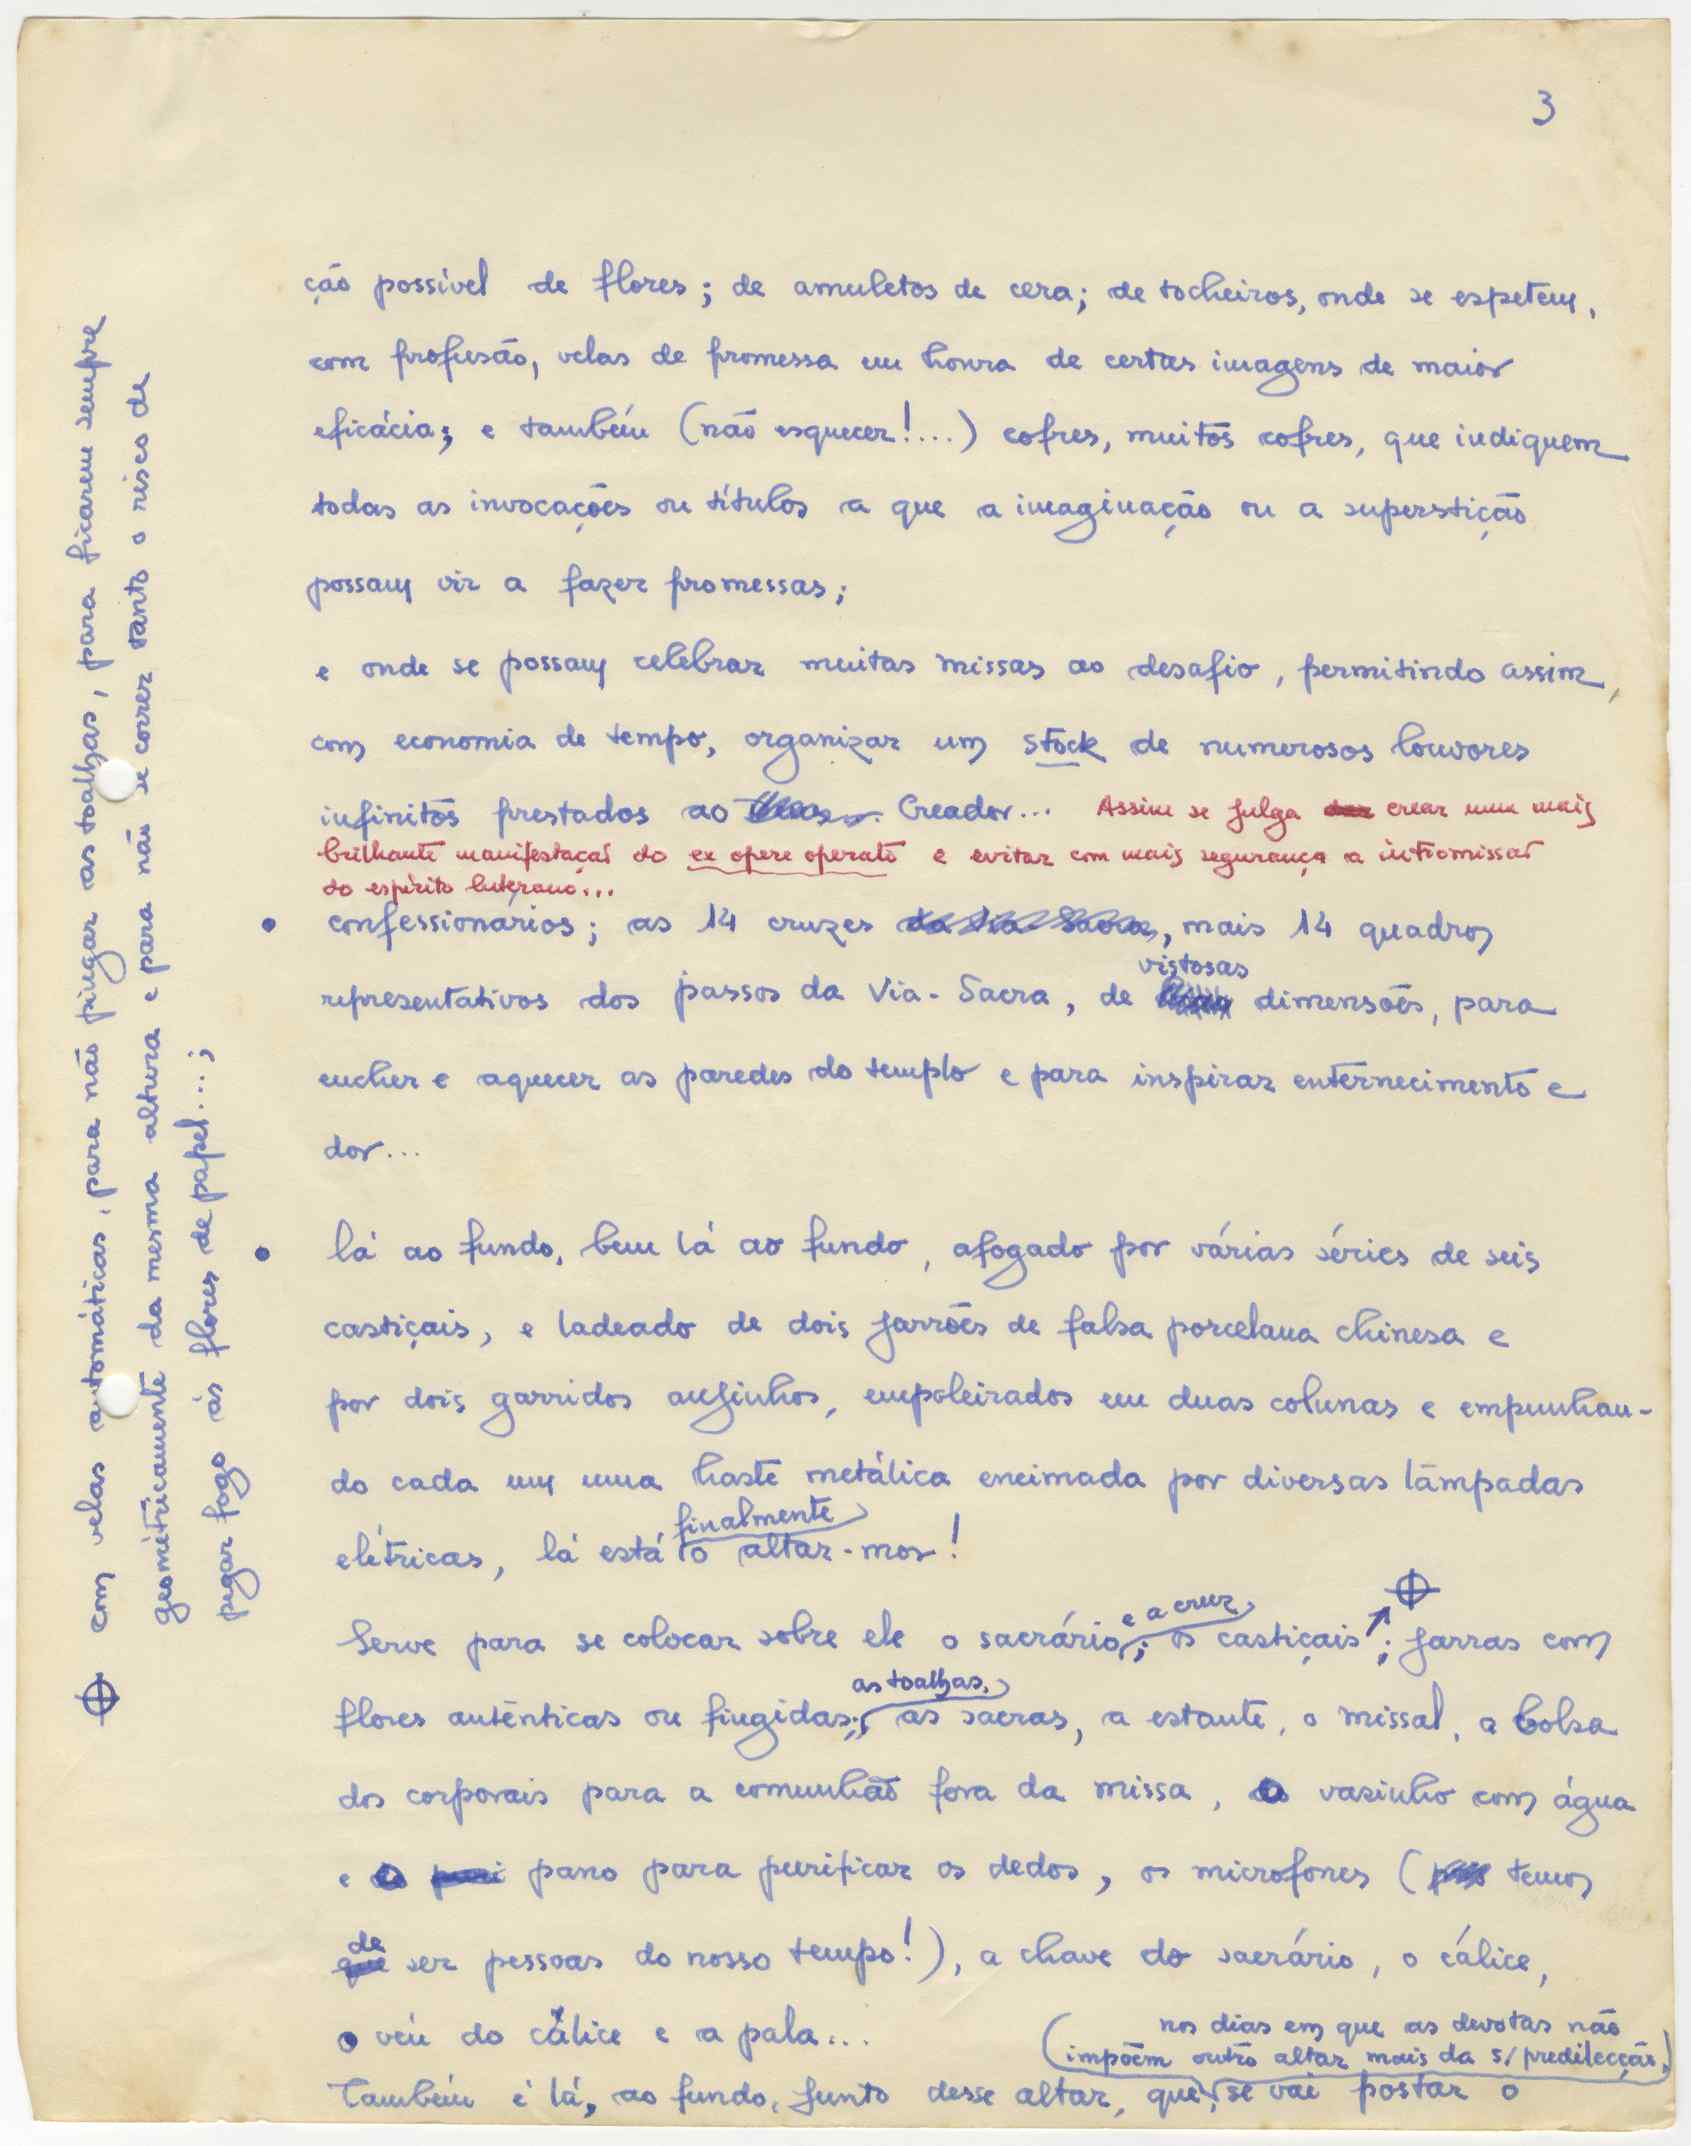 3
ção possível de flores; de amuletos de cera; de tocheiros, onde se espetem,
com profusão, velas de promessa em honra de certas imagens de maior
eficácia; e também (não esquecer!...) cofres, muitos cofres, que indiquem
todas as invocações ou títulos a que a imaginação ou a superstição
possam vir a fazer promessas;
e onde se possam celebrar muitas missas ao desafio, permitindo assim,
com economia de tempo, organizar um stock de numerosos louvores
infinitos prestados ao Creador... Assim se julga crear uma mais
brilhante manifestação do ex opere operato e evitar com mais segurança a intromissão
do espírito luterano...
• confessionários; as 14 cruzes da Via-Sacra, mais 14 quadros
vistosas
representativos dos passos da Via-Sacra, de dimensões, para
encher e aquecer as paredes do templo e para inspirar enternecimento e
dor...
• lá ao fundo, bem lá ao fundo, afogado por várias séries de seis
castiçais, e ladeado de dois jarrões de falsa porcelana chinesa e
por dois garridos anjinhos, empoleirados em duas colunas e empunhan-
do cada um uma haste metálica encimada por diversas lâmpadas
finalmente
elétricas, lá está o altar-mor!
e a cruz
Serve para se colocar sobre ele o sacrário; os castiçais; jarras com
as toalhas,
flores autênticas ou fingidas; as sacras, a estante, o missal, a bolsa
dos corporais para a comunhão fora da missa, o vasinho com água
e o pano para purificar os dedos, os microfones (temos
de
que ser pessoas do nosso tempo!), a chave do sacrário, o cálice,
o véu do cálice e a pala...
(nos dias em que as devotas não
impõem outro altar mais da s/ predilecção,)
Também é lá, ao fundo, junto desse altar, que, se vai postar o
com velas automáticas, para não pingar as toalhas, para ficarem sempre
geométricamente da mesma altura e para não se correr tanto o risco de
pegar fogo às flores de papel...;